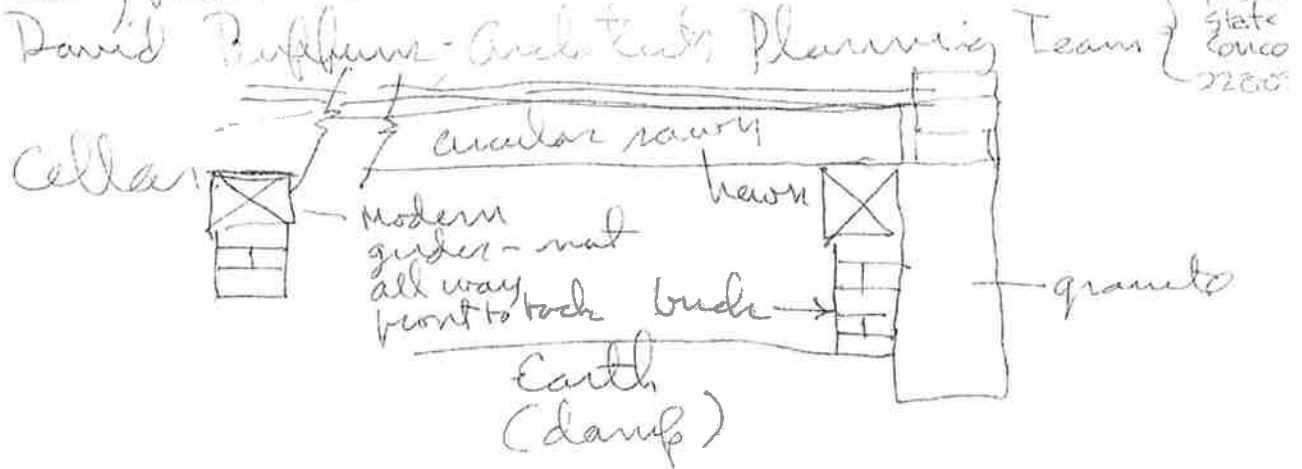 David Buffum - Architects Planning Team {
State
Conco
Cellar
circular sawn
hewn
Modern
girder - not
all way
front to back
brick
granite
Earth
(damp)